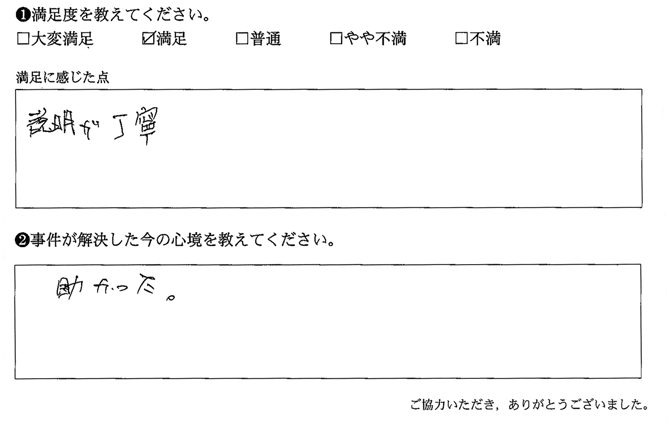 ❶満足度を教えてください。
□大変満足 ☑満足 □普通 □やや不満 □不満
満足に感じた点
説明が丁寧
❷事件が解決した今の心境を教えてください。
助かった。
ご協力いただき，ありがとうございました。